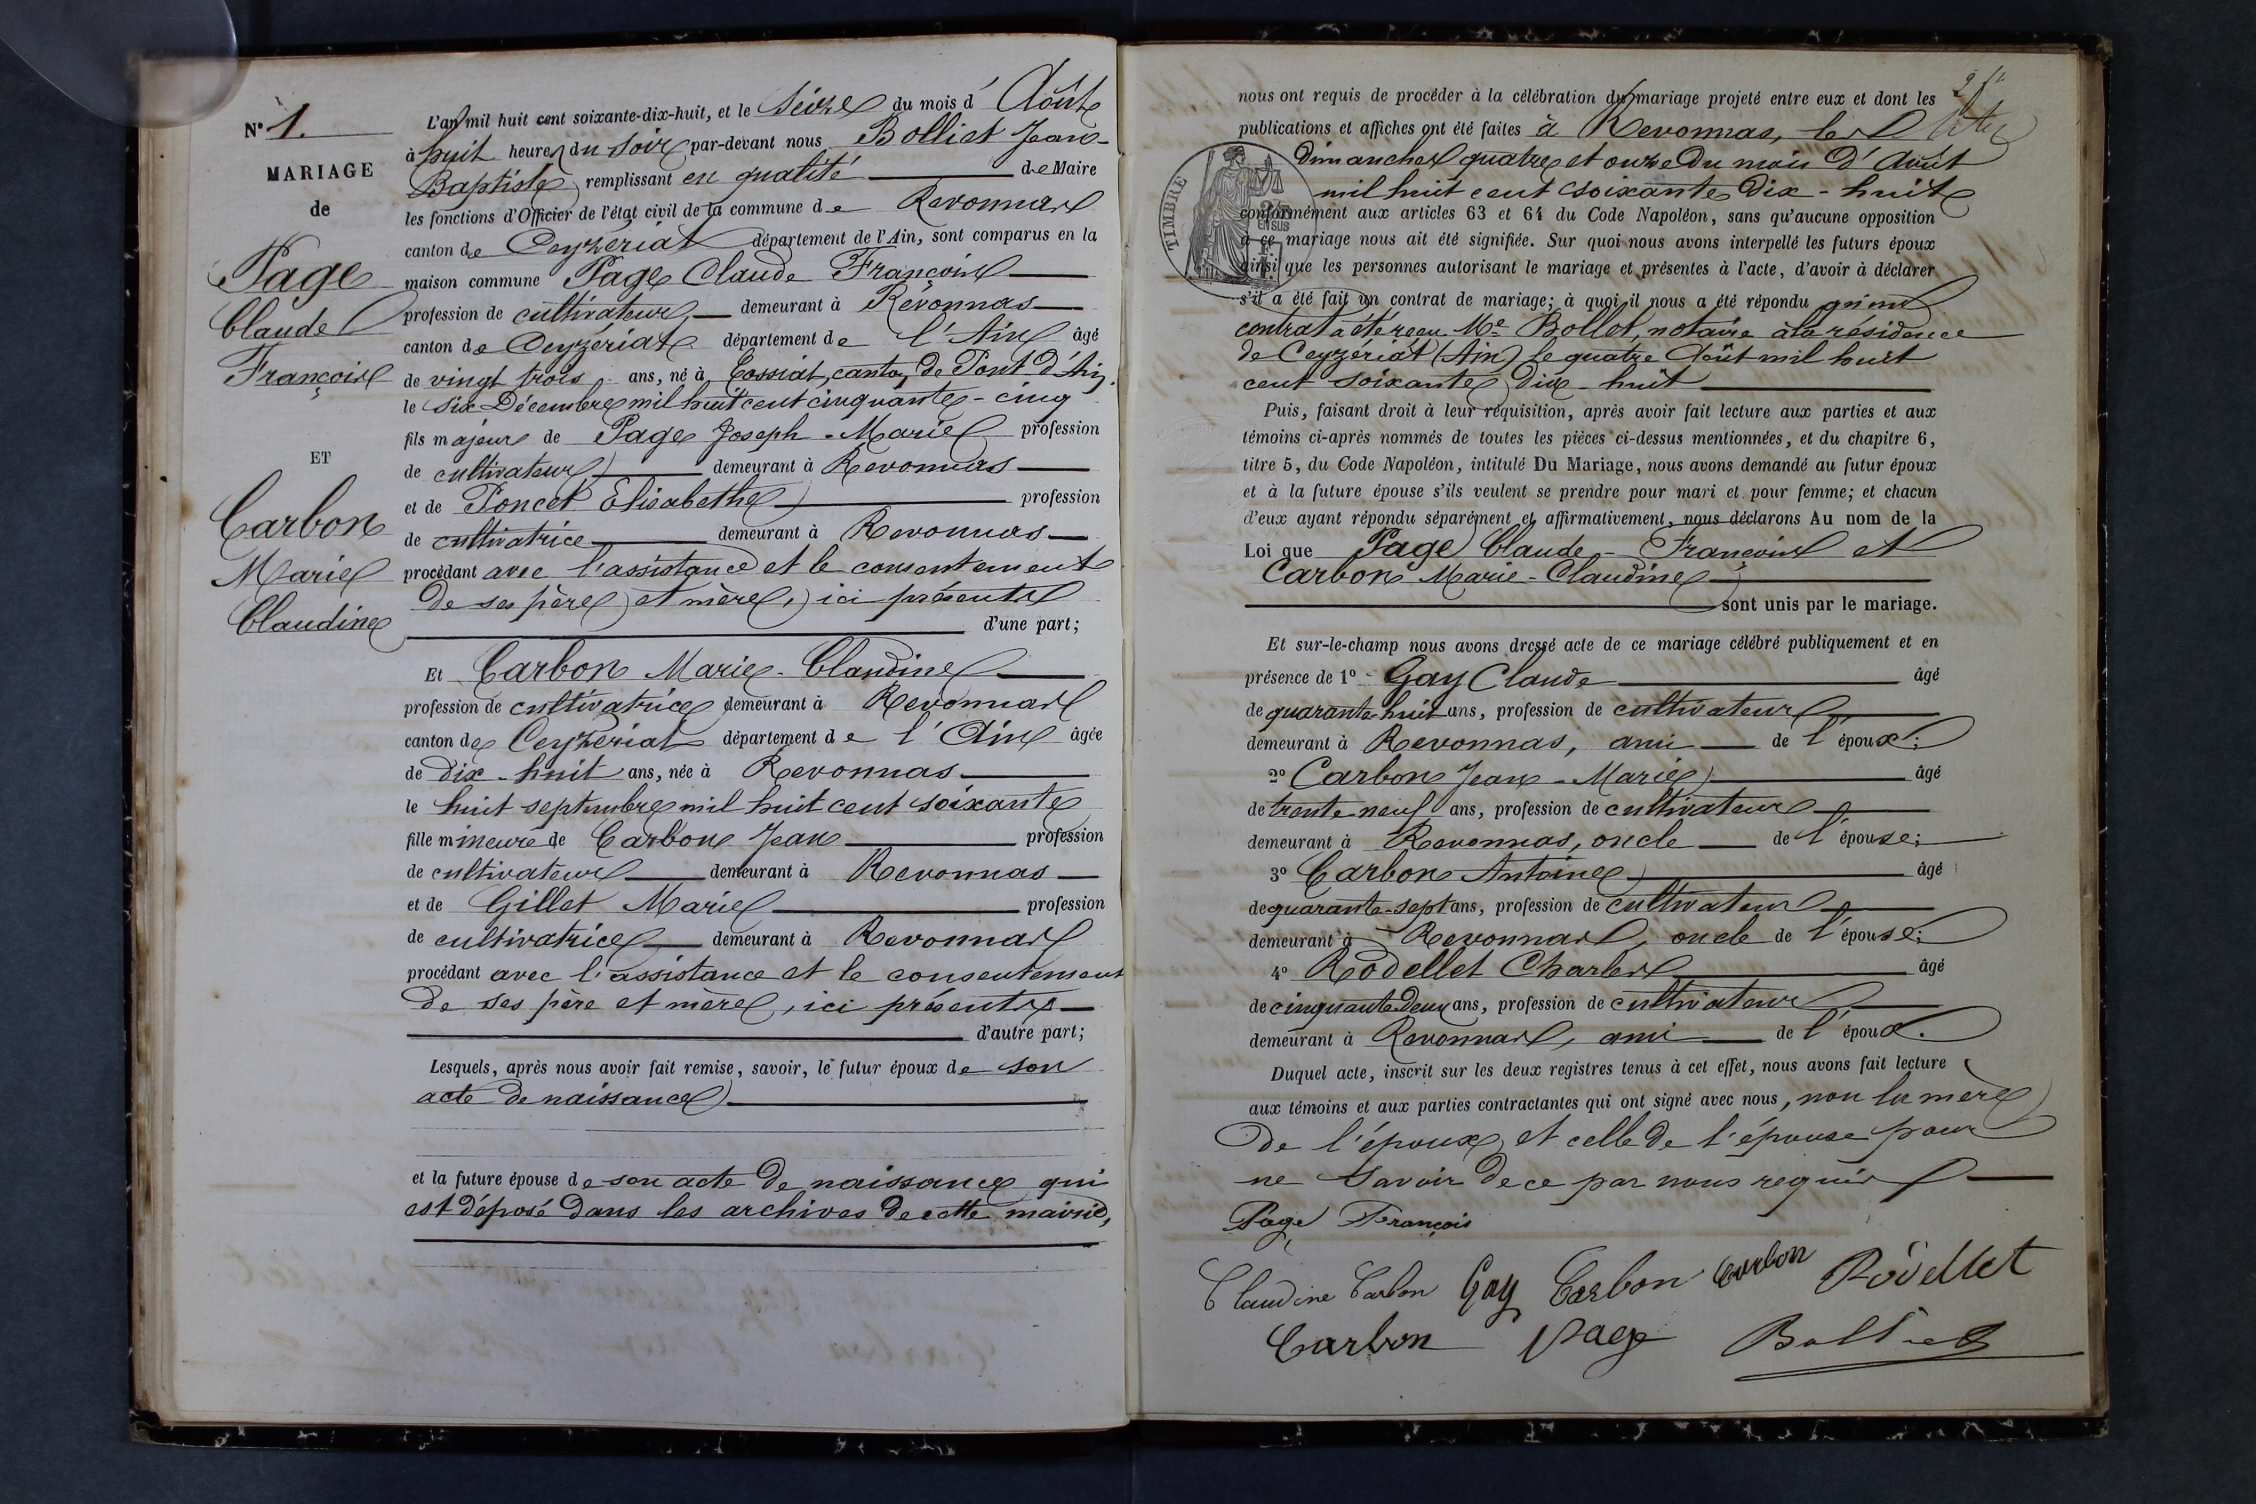 N° 1.
MARIAGE
de
Page
Claude
François
ET
Carbon
Marie
Claudine
L'an mil huit cent soixante-dix-huit, et le seize du mois d'Août
à huit heures du soir par-devant nous Bolliet Jean-
Baptiste remplissant en qualité de Maire
les fonctions d'Officier de l'état civil de la commune de Revonnas
canton de Ceyzériat département de l'Ain, sont comparus en la
maison commune Page Claude François
profession de cultivateur demeurant à Revonnas
canton de Ceyzériat département de l'Ain âgé
de vingt trois ans, né à Tossiat, canton de Pont d'Ain.
le six Décembre mil huit cent cinquante-cinq
fils majeur de Page Joseph-Marie profession
de cultivateur demeurant à Revonnas
et de Poncet Elisabeth profession
de cultivatrice demeurant à Revonnas
procédant avec l'assistance et le consentement
de ses père et mère, ici présents
d'une part;
Et Carbon Marie-Claudine
profession de cultivatrice demeurant à Revonnas
canton de Ceyzériat département de l'Ain âgée
de dix-huit ans, née à Revonnas
le huit septembre mil huit cent soixante
fille mineure de Carbon Jean profession
de cultivateur demeurant à Revonnas
et de Gillet Marie profession
de cultivatrice demeurant à Revonnas
procédant avec l'assistance et le consentement
de ses père et mère, ici présents
d'autre part;
Lesquels, après nous avoir fait remise, savoir, le futur époux de son
acte de naissance
et la future épouse de son acte de naissance qui
est déposé dans les archives de cette mairie,
nous ont requis de procéder à la célébration du mariage projeté entre eux et dont les
publications et affiches ont été faites à Revonnas, les
dimanches quatre et onze du mois d'Août
mil huit cent soixante dix-huit
TIMBRE
conformément aux articles 63 et 64 du Code Napoléon, sans qu'aucune opposition
à ce mariage nous ait été signifiée. Sur quoi nous avons interpellé les futurs époux
ainsi que les personnes autorisant le mariage et présentes à l'acte, d'avoir à déclarer
s'il a été fait un contrat de mariage; à quoi il nous a été répondu qu'un
contrat a été reçu Me Bollet, notaire à la résidence
de Ceyzériat (Ain) le quatre Août mil huit
cent soixante dix-huit
Puis, faisant droit à leur réquisition, après avoir fait lecture aux parties et aux
témoins ci-après nommés de toutes les pièces ci-dessus mentionnées, et du chapitre 6,
titre 5, du Code Napoléon, intitulé Du Mariage, nous avons demandé au futur époux
et à la future épouse s'ils veulent se prendre pour mari et pour femme; et chacun
d'eux ayant répondu séparément et affirmativement, nous déclarons Au nom de la
Loi que Page Claude-François et
Carbon Marie-Claudine
sont unis par le mariage.
Et sur-le-champ nous avons dressé acte de ce mariage célébré publiquement et en
présence de 1° Gay Claude âgé
de quarante-huit ans, profession de cultivateur
demeurant à Revonnas, ami de l'époux;
2° Carbon Jean-Marie âgé
de trente neuf ans, profession de cultivateur
demeurant à Revonnas, oncle de l'épouse;
3° Carbon Antoine âgé
de quarante-sept ans, profession de cultivateur
demeurant à Revonnas, oncle de l'épouse;
4° Rodellet Charles âgé
de cinquante deux ans, profession de cultivateur
demeurant à Revonnas, ami de l'époux.
Duquel acte, inscrit sur les deux registres tenus à cet effet, nous avons fait lecture
aux témoins et aux parties contractantes qui ont signé avec nous, non la mère
de l'époux, et celle de l'épouse pour
ne savoir de ce par nous requis
Page François
Claudine Carbon Gay Carbon Carbon Rodellet
Carbon Page Bolliet